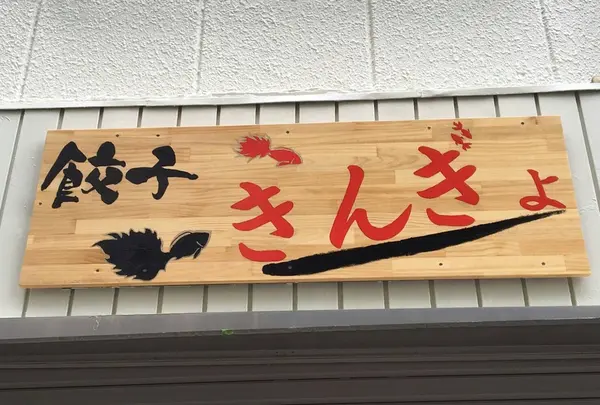 餃子
きんぎょ